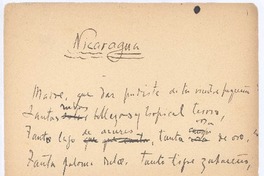 Nicaragua
Madre, que dar pudiste de tu vientre pequeño
Tantas rubias bellezas y tropical tesoro,
Tanto lago de azures, tanta rosa de oro,
Tanta paloma dulce, tanto tigre zahareño,